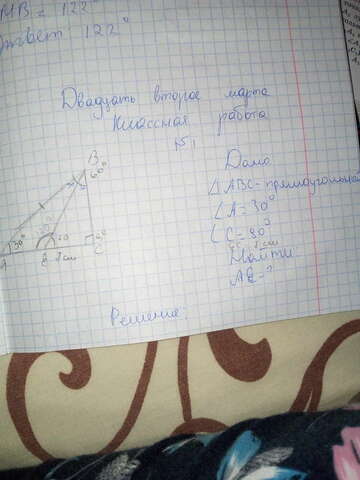 MB = 122°
Ответ 122°
Двадцать второе марта
Классная работа
№1
Дано
△ABC - прямоугольный
∠A = 30°
∠C = 90°
EC = 8 см
Найти
AE - ?
B
60°
30°
60
A
E
8 см
C
Решение: